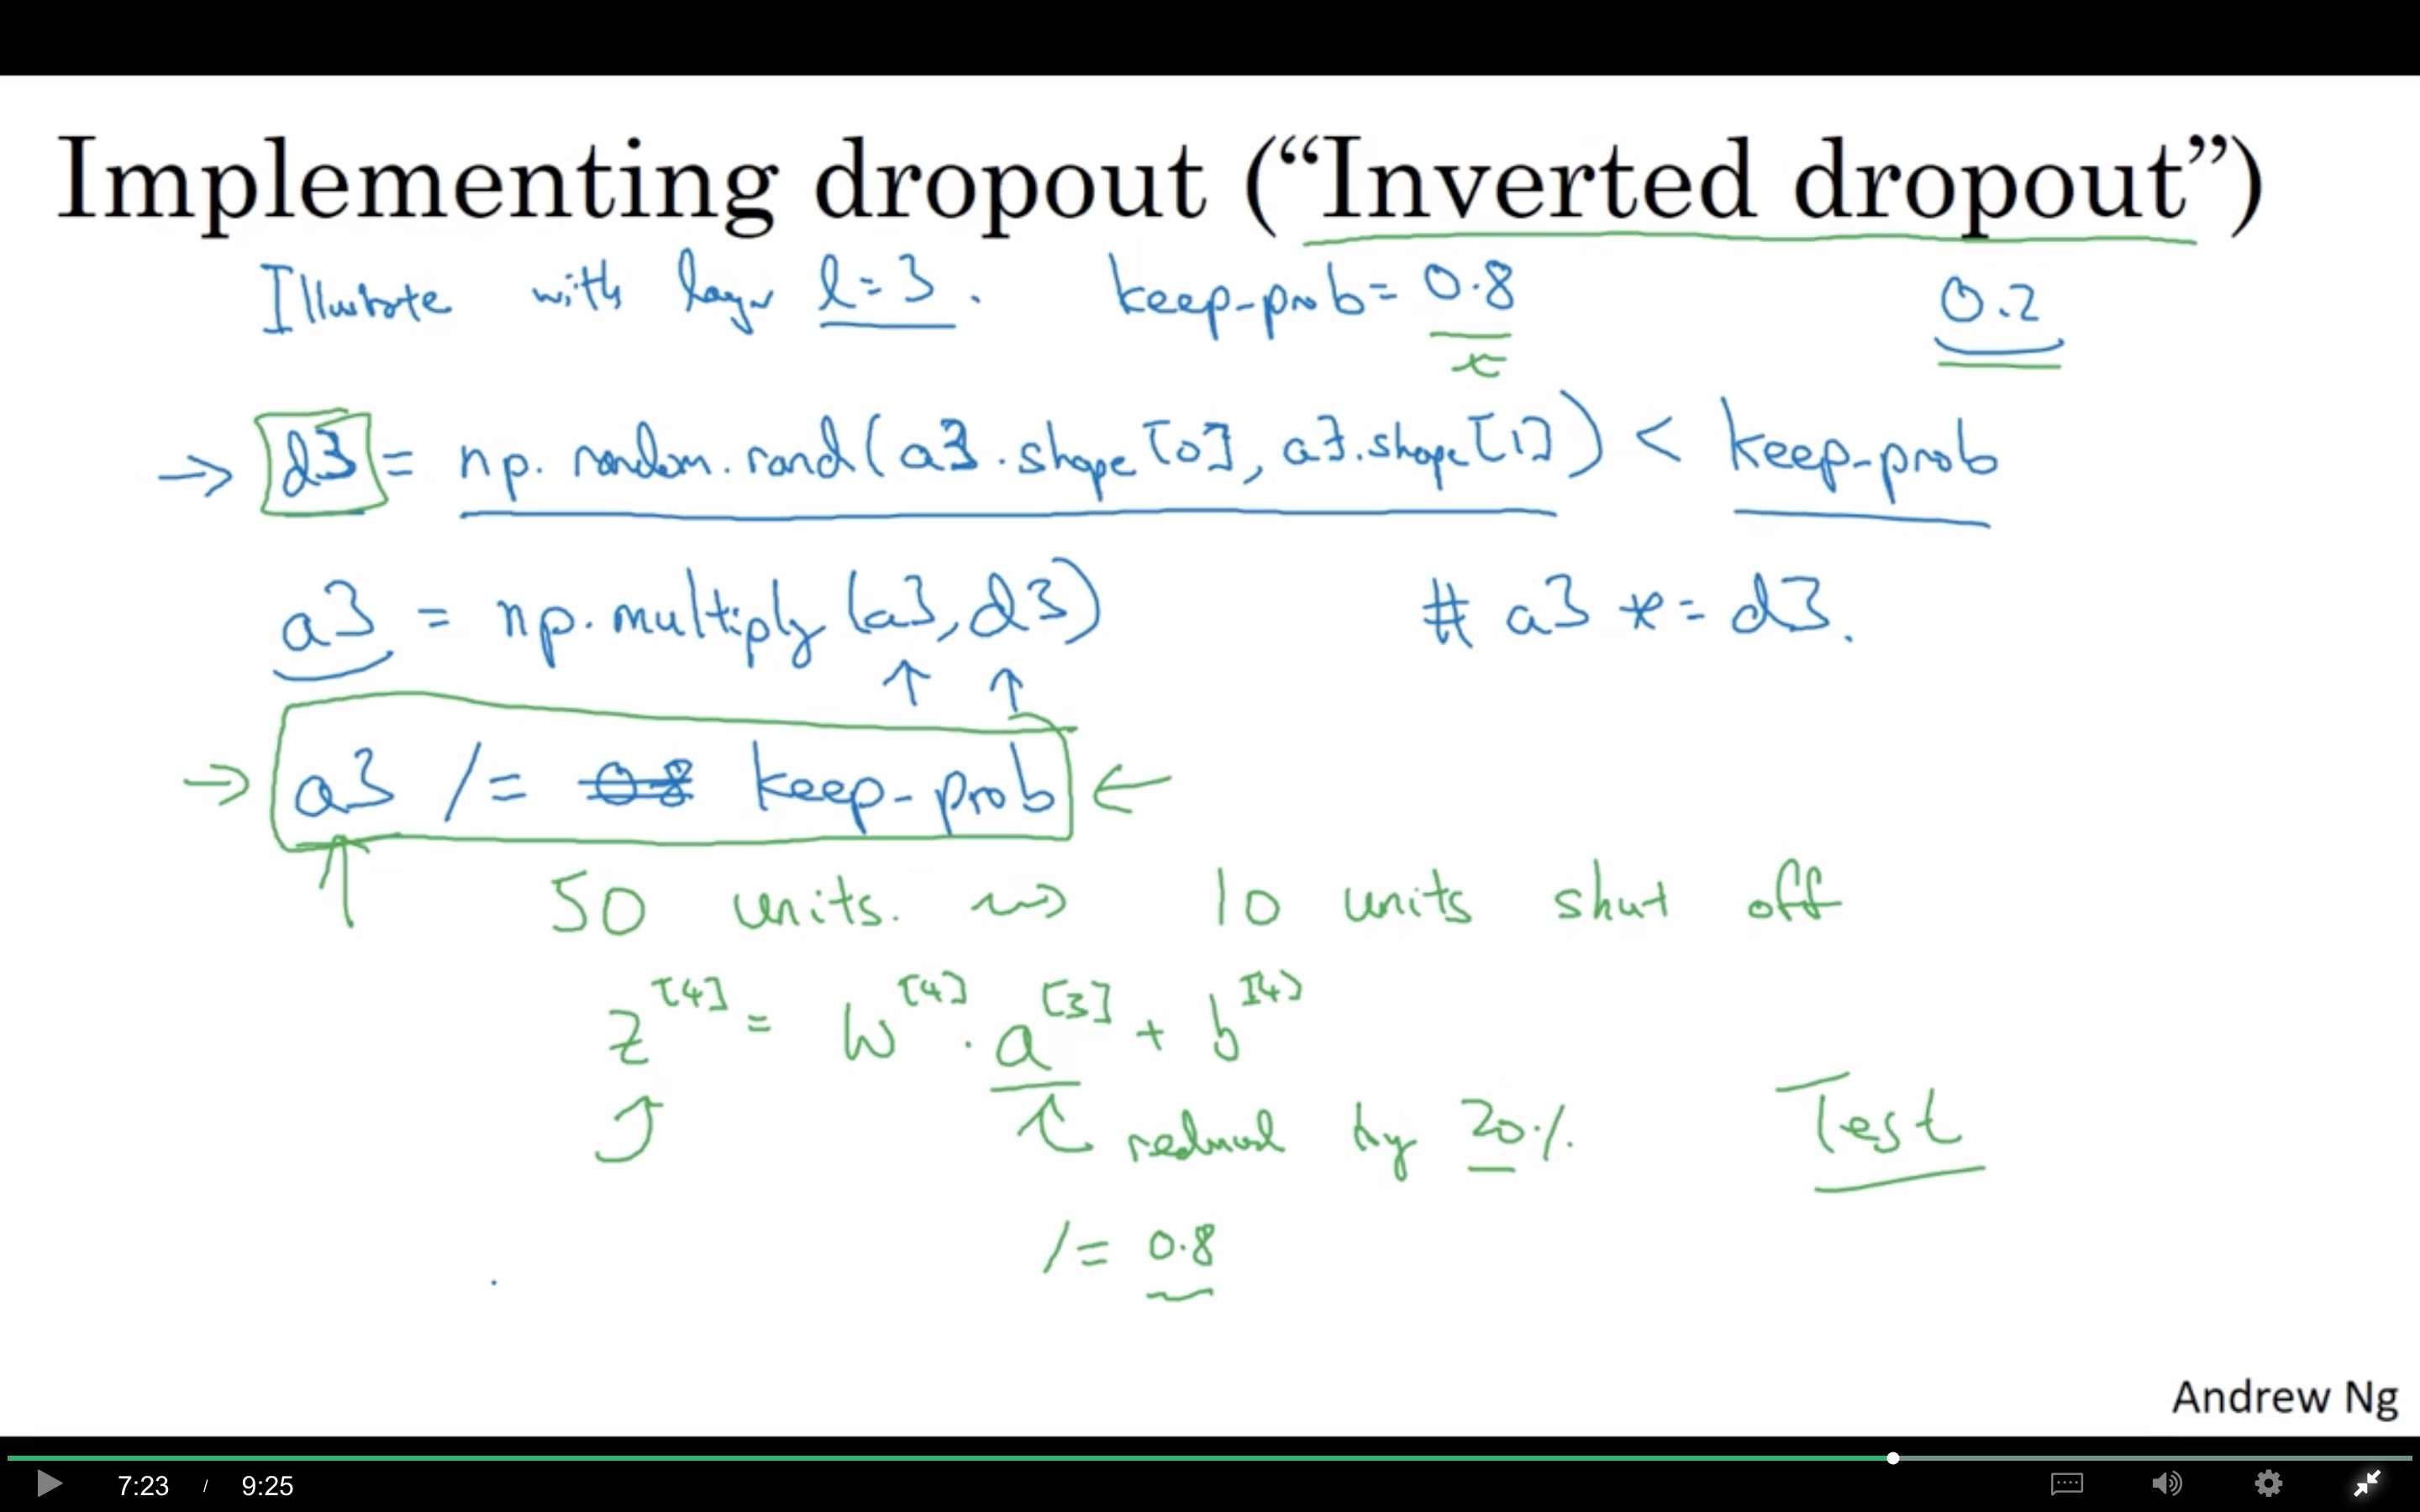 Implementing dropout (“Inverted dropout”)
Illustrate with layer l=3. keep-prob=0.8 0.2
→ d3 = np.random.rand(a3.shape[0], a3.shape[1]) < keep-prob
a3 = np.multiply(a3,d3) # a3 *= d3.
↑ ↑
→ a3 /= 0.8 keep-prob ←
50 units. ⇝ 10 units shut off
z^[4] = W^[4] · a^[3] + b^[4]
reduced by 20%. Test
/= 0.8
Andrew Ng
7:23 / 9:25